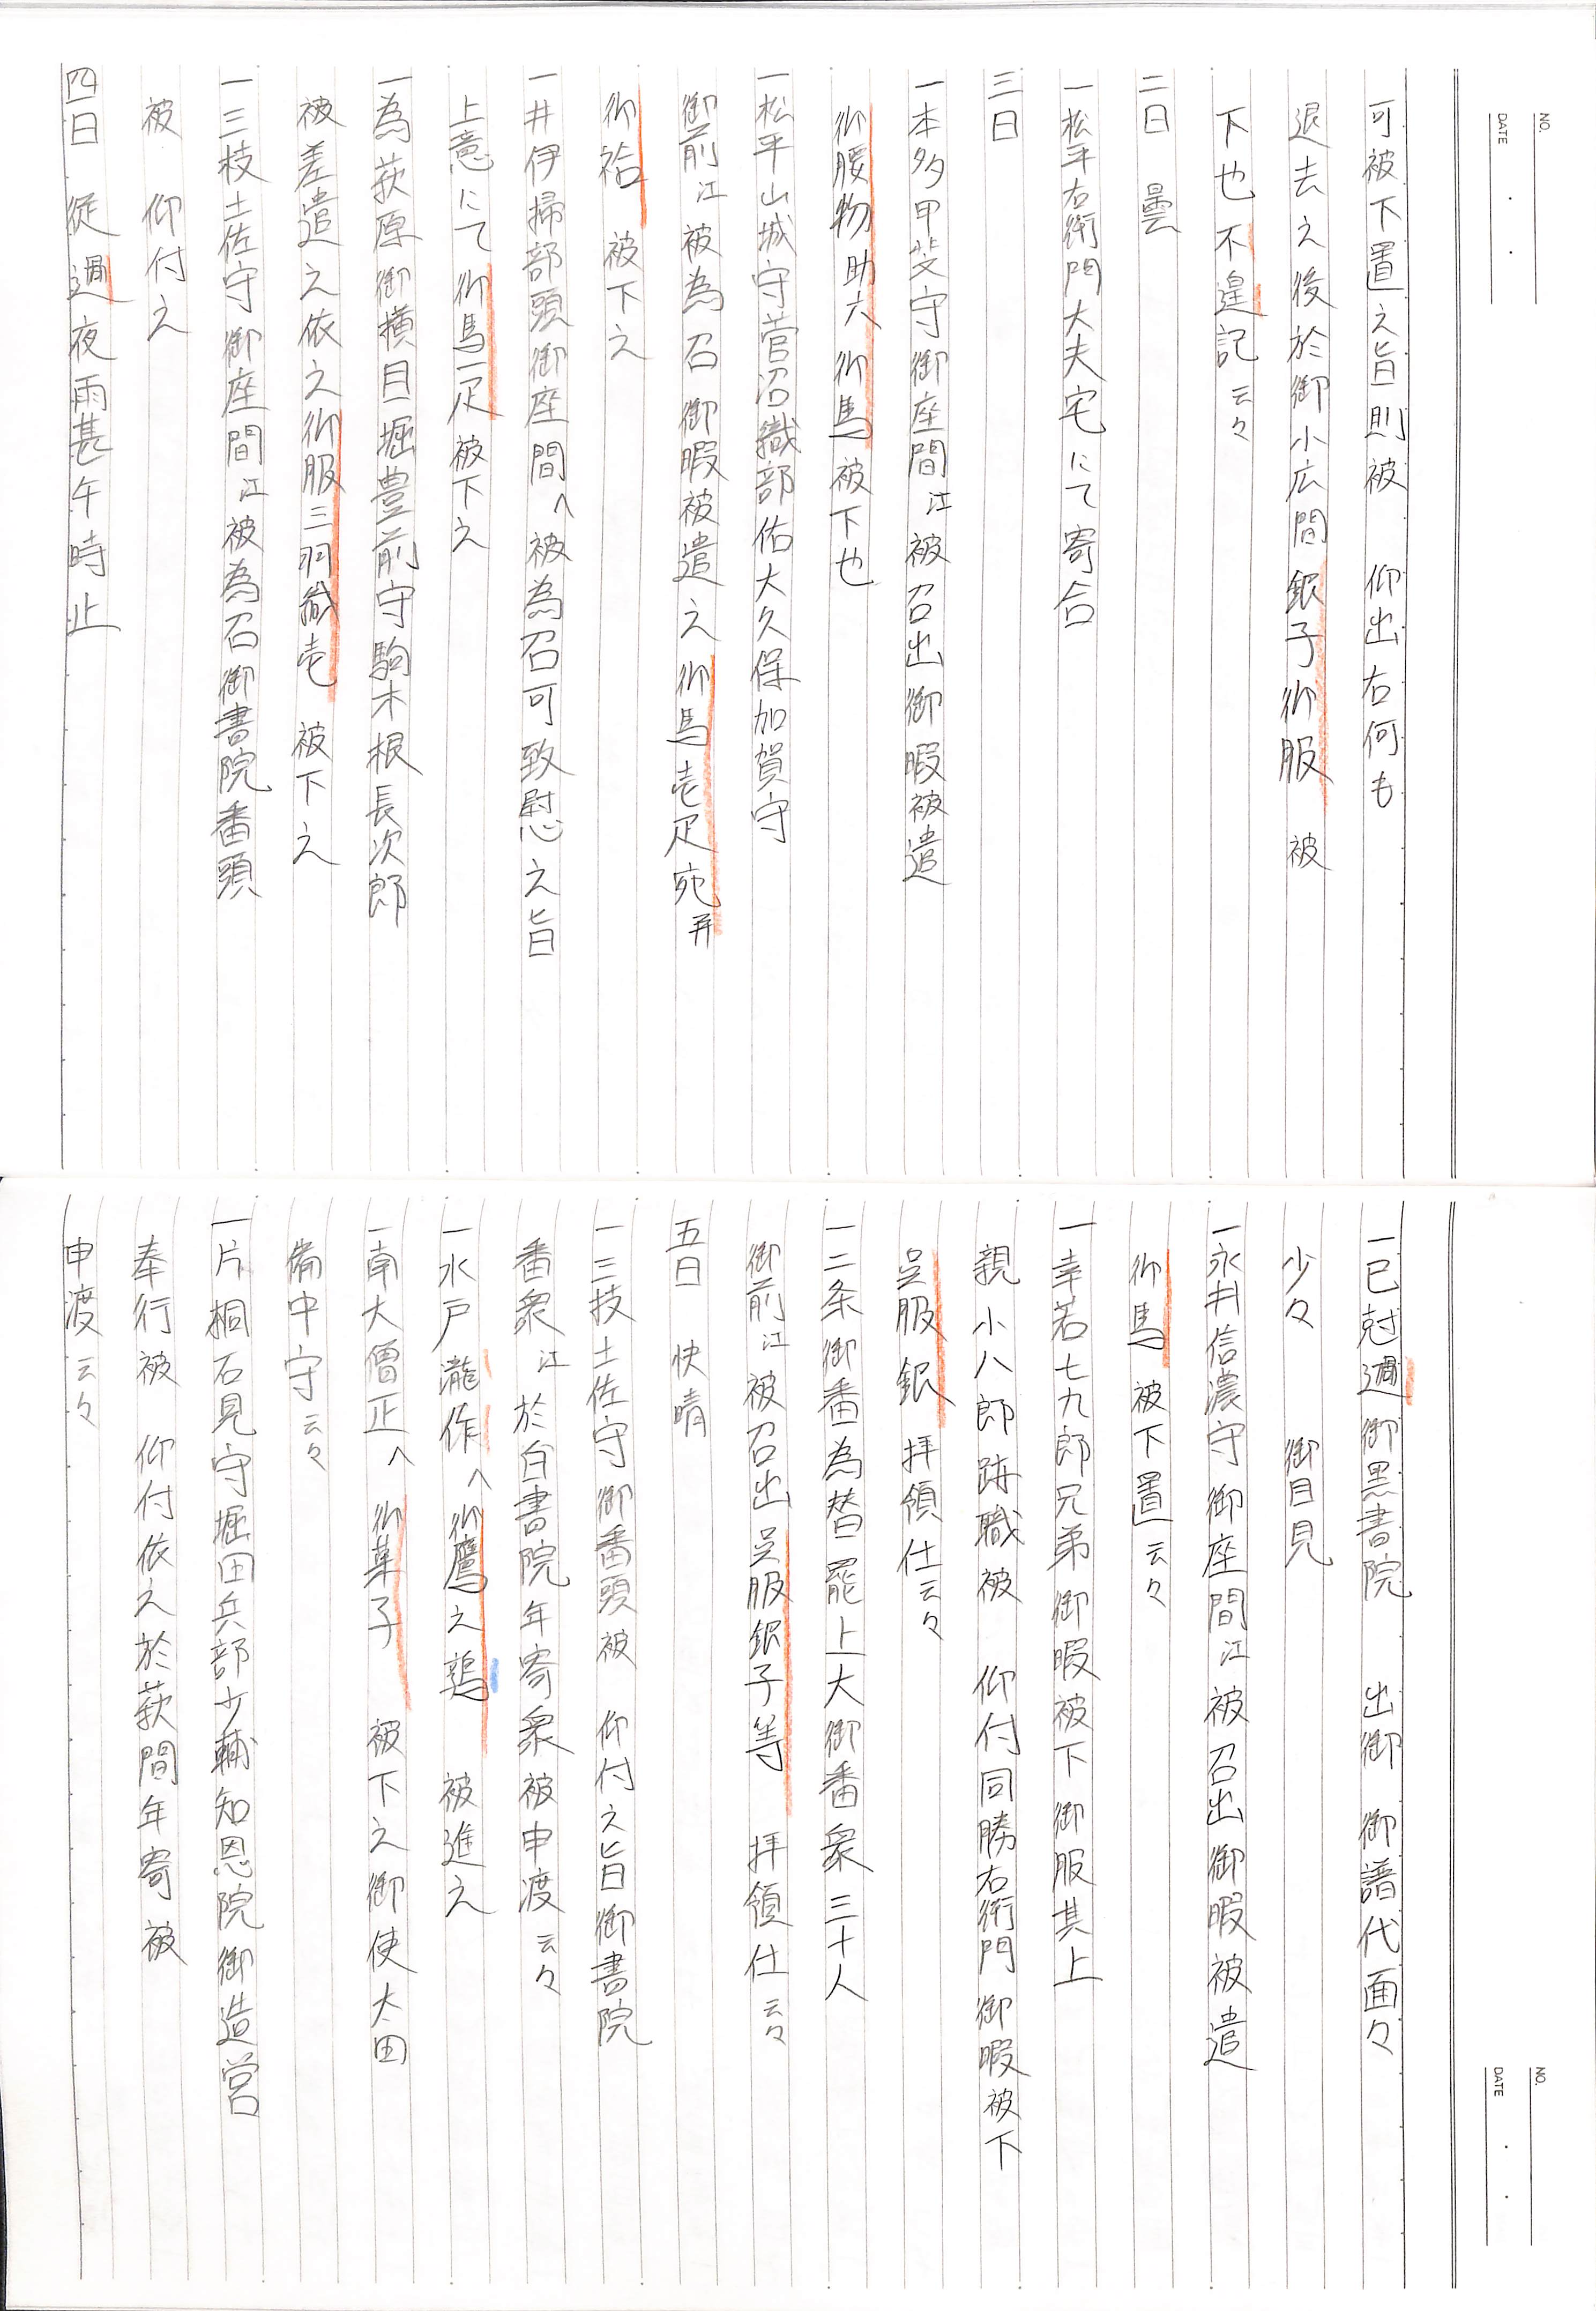 NO.
DATE
可被下置之旨則被 仰出右何も
退去之後於御小広間銀子御服 被
下也不遑記云々
二日 曇
一松平右衛門大夫宅にて寄合
三日
一本多甲斐守御座間江被召出御暇被遣
御腰物助六御馬被下也
一松平山城守菅沼織部佑大久保加賀守
御前江被為召御暇被遣之御馬壱疋宛并
御袷 被下之
一井伊掃部頭御座間へ被為召可致慰之旨
上意にて御馬一疋被下之
一為萩原御横目堀豊前守駒木根長次郎
被差遣之依之御服三羽織壱 被下之
一三枝土佐守御座間江被為召御書院番頭
被 仰付之
四日 従過夜雨甚午時止
NO.
DATE
一巳尅過御黒書院 出御 御譜代面々
少々 御目見
一永井信濃守御座間江被召出御暇被遣
御馬被下置云々
一幸若七九郎兄弟御暇被下御服其上
親小八郎跡職被 仰付同勝右衛門御暇被下
呉服銀 拝領仕云々
一二条御番為替罷上大御番衆三十人
御前江被召出呉服銀子等 拝領仕云々
五日 快晴
一三技土佐守御番頭被 仰付之旨御書院
番衆江於白書院年寄衆被申渡云々
一水戸瀧作へ御鷹之鶉 被進之
一南大僧正へ御菓子 被下之御使太田
備中守云々
一片桐石見守堀田兵部少輔知恩院御造営
奉行被 仰付依之於萩間年寄被
申渡云々